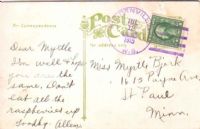 For Correspondence
Post Card
for address only
WIS.
1913
Dear Myrtle,
I'm well & hope
you are the
same. Don't
eat all the
raspberries up
Allen
Miss Myrtle
Payne Av.
St Paul
Minn.